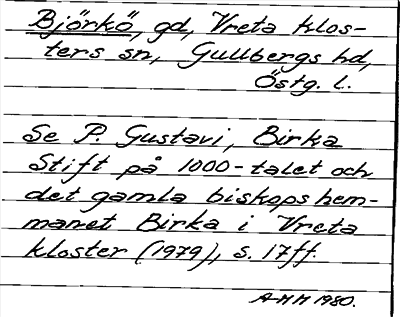 Björkö, gd, Vreta Klos-
ters sn, Gullbergs hd,
Östg. l.
Se P. Gustavi, Birka
Stift på 1000-talet och
det gamla biskopshem-
manet Birka i Vreta
kloster (1979), s. 17ff.
AHH 1980.